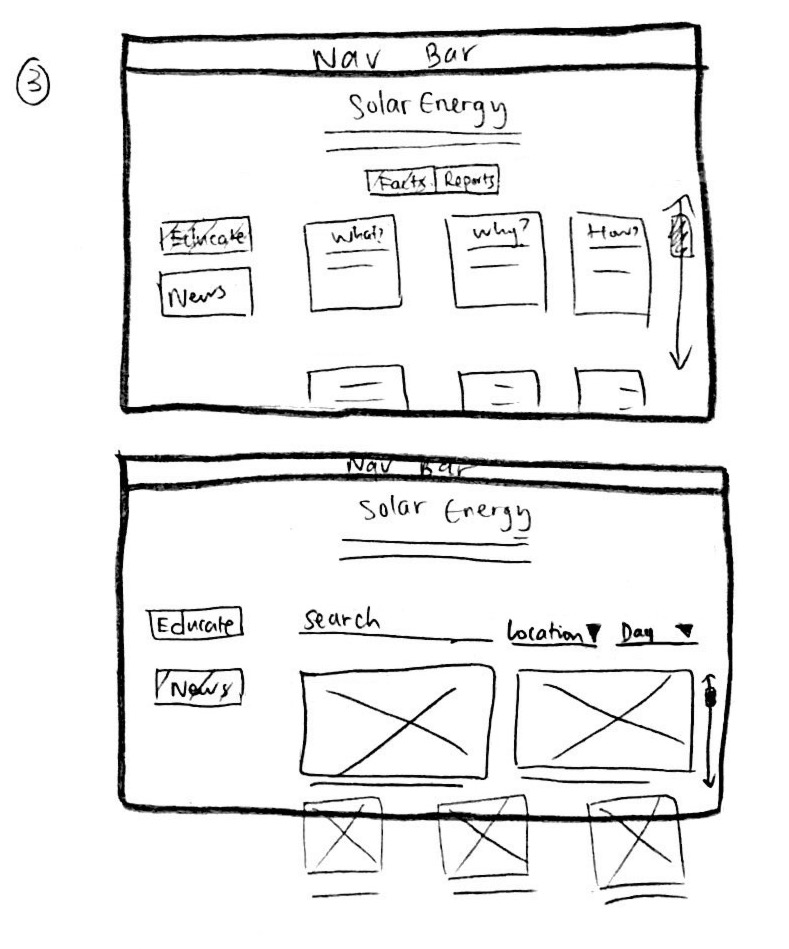 3
Nav Bar
Solar Energy
Facts Reports
Educate
What? Why? How?
News
Nav Bar
Solar Energy
Educate
Search
Location Day
News